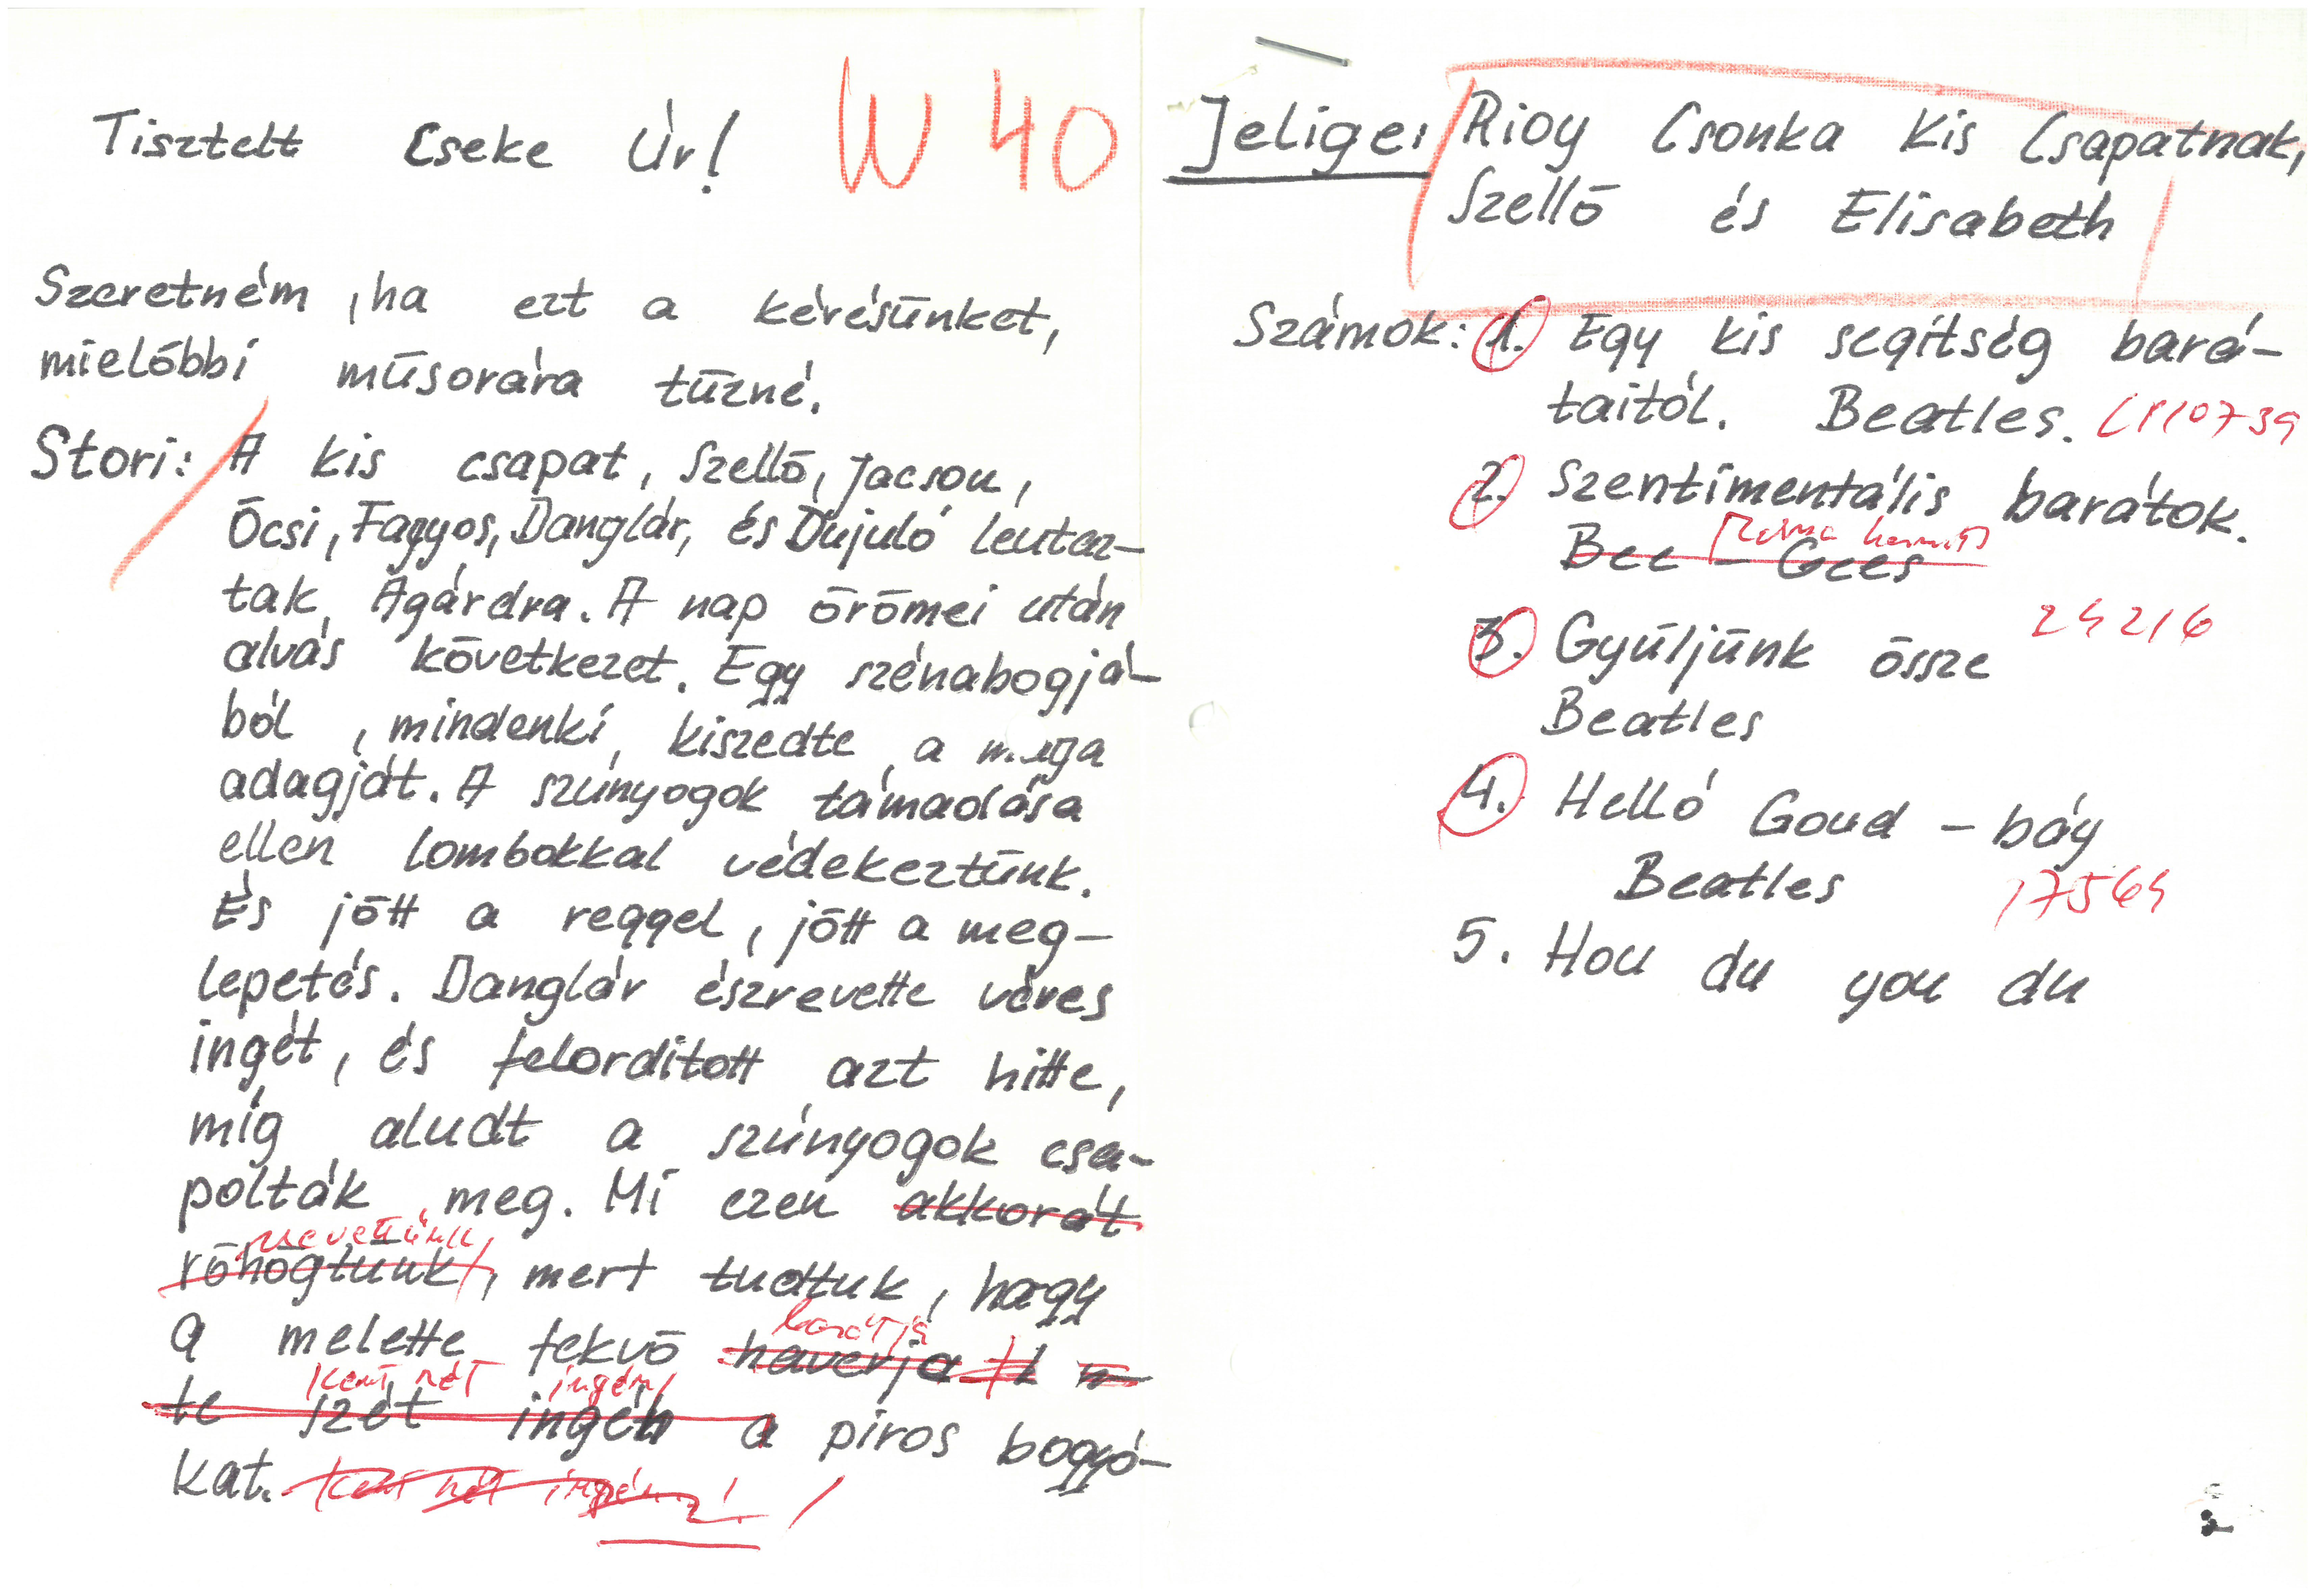 Tisztelt Cseke Úr! W 40
Szeretném, ha ezt a kérésünket,
mielőbbi műsorára tűzné.
Stori: A kis csapat, Szellő, Jacson,
Öcsi, Fagyos, Danglár, és Dujuló leutaz-
tak, Agárdra. A nap örömei után
alvás következet. Egy szénabogjá-
ból, mindenki, kiszedte, a maga
adagját. A szúnyogok támadása
ellen lombokkal védekeztünk.
És jött a reggel, jött a meg-
lepetés. Danglár észrevette véres
ingét, és felordított azt hitte,
míg aludt a szúnyogok csa-
polták meg. Mi ezen akkorát
nevettünk
röhögtünk, mert tudtuk, hagy
barátja
a melette fekvő haverja
kent szét ingén
te szét ingén a piros bogyó-
kat. kent szét ingén!
Jelige: Rioy Csonka Kis Csapatnak,
Szellő és Elisabeth
Számok: 1. Egy kis segítség bará-
taitól. Beatles.
2. Szentimentális barátok.
Bee - Gees
24216
3. Gyúljünk össze
Beatles
4. Helló Goud - báy
Beatles 17564
5. Hou du you du